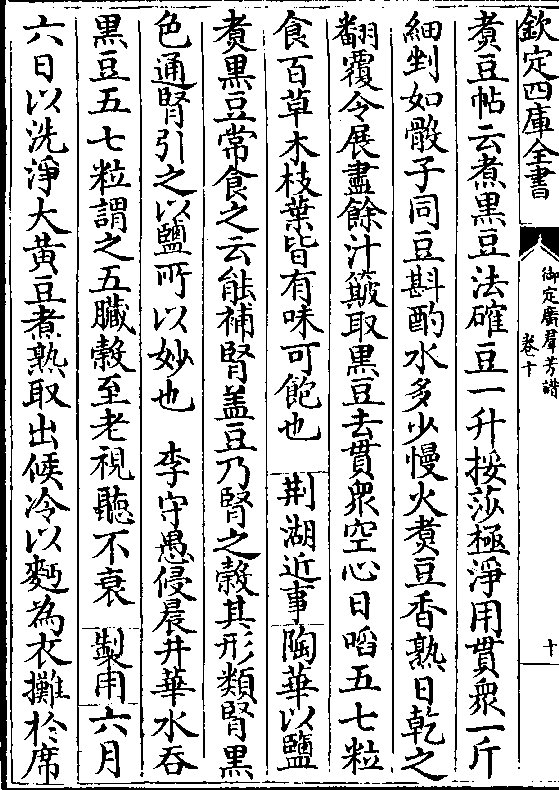 欽定四庫全書
御定廣羣芳譜
卷十
十
煑豆帖云煮黒豆法確豆一升挼莎極淨用貫衆一斤
細剉如骰子同豆斟酌水多少慢火煑豆香熟日乾之
翻覆令展盡餘汁簸取黒豆去貫衆空心日㗖五七粒
食百草木枝葉皆有味可飽也 荆湖近事陶華以鹽
煑黒豆常食之云能補腎盖豆乃腎之榖其形類腎黒
色通腎引之以鹽所以妙也 李守愚侵晨井華水吞
黒豆五七粒謂之五臟榖至老視聽不衰 製用六月
六日以洗淨大黃豆煮熟取出候冷以麪為衣攤於席